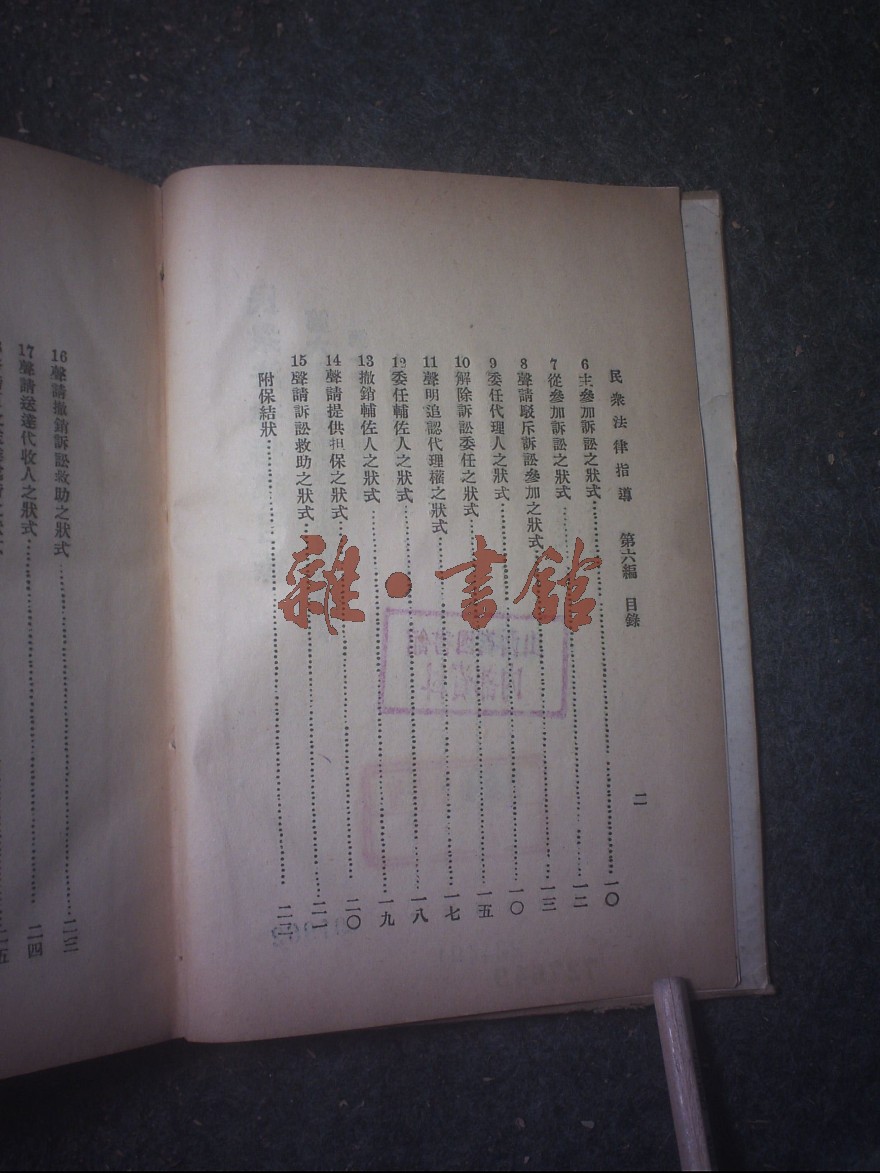 民衆法律指導 第六編 目錄 二
6 主參加訴訟之狀式……一〇
7 從參加訴訟之狀式……一二
8 聲請駁斥訴訟參加之狀式……一三
9 委任代理人之狀式……一〇
10 解除訴訟委任之狀式……一五
11 聲明追認代理權之狀式……一七
12 委任輔佐人之狀式……一八
13 撤銷輔佐人之狀式……一九
14 聲請提供担保之狀式……二〇
15 聲請訴訟救助之狀式……二一
附保結狀……二二
16 聲請撤銷訴訟救助之狀式……二三
17 聲請送達代收人之狀式……二四
二五
雜·書館